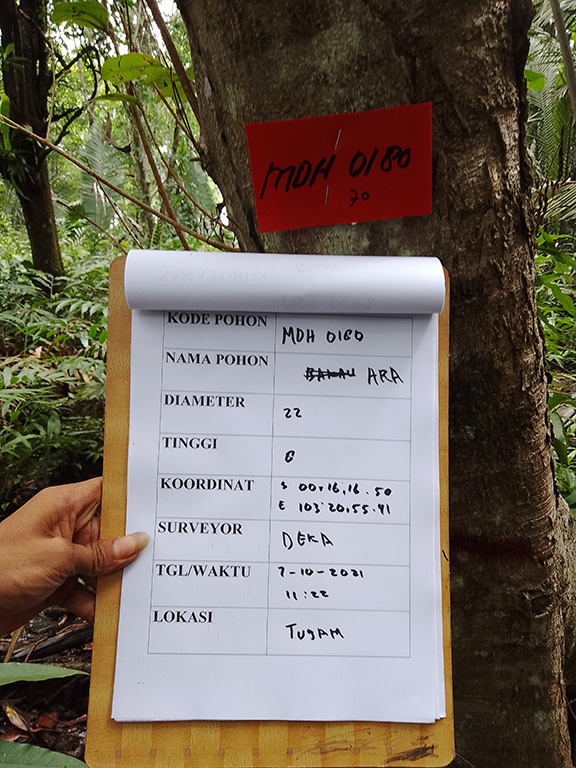 MDH 0180
70
KODE POHON MDH 0180
NAMA POHON ARA
DIAMETER 22
TINGGI
KOORDINAT S 00,16,16.50
E 103,20,55.41
SURVEYOR DEKA
TGL/WAKTU 7-10-2021
11:22
LOKASI TUJAM